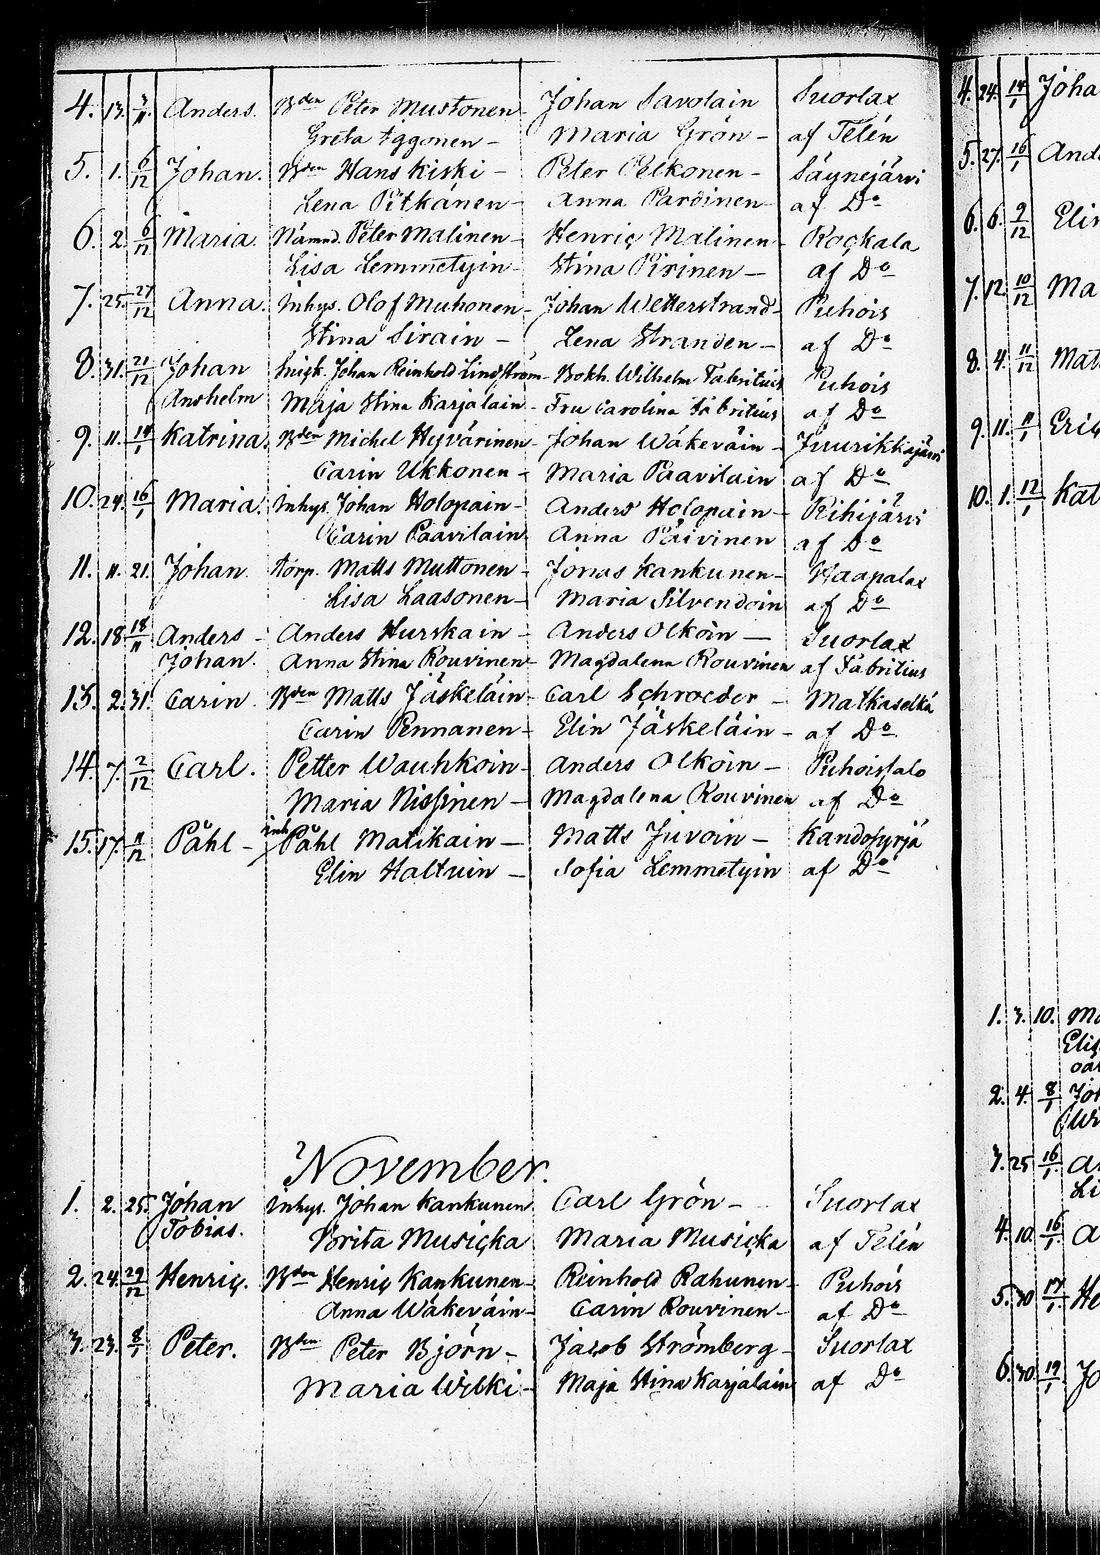 4. 13. 3/11. Anders. Bden Peter Mustonen - Johan Savolain Suorlax
Greta Äggonen - Maria Grön - af Telén
5. 1. 6/12 Johan. Bden Hans Kiski - Peter Pelkonen - Säynejärvi
Lena Pitkänen - Anna Pardinen - af Do
6. 2. 6/12 Maria. Nämnd. Peter Malinen - Henriç Malinen - Roçkala
Lisa Lemmetyin - Stina Pirinen - af Do
7. 25. 27/12 Anna. inhys. Olof Muhonen - Johan Wetterstrand - Puhois
Stina Sirain - Lena Stranden - af Do
8. 31. 21/12 Johan Johan Reinhold Lindström - Bokh. Wilhelm Fabritius Puhois
Anshelm Maja Stina Karjalain - Fru Carolina Fabritius af Do
9. 11. 14/1 Katrina. Bden Michel Hyvärinen - Johan Wäkeväin - Juurikkajärvi
Carin Ukkonen - Maria Paavilain af Do
10. 24. 16/1 Maria. inhys. Johan Holopain - Anders Holopain - Riihijärvi
Carin Paavilain Anna Päivinen af Do
11. 11. 21. Johan. torp. Matts Muttonen - Jonas Kankunen - Haapalax
Lisa Laasonen - Maria Silvendoin af Do
12. 18 18/11 Anders - Anders Hurskain - Anders Olkoin - Suorlax
Johan. Anna Stina Rouvinen - Magdalena Rouvinen af Fabritius
13. 2. 31. Carin. Bden Matts Jäskeläin - Carl Schroeder - Matkaselkä
Carin Pennanen - Elin Jäskeläin - af Do
14. 7. 2/12 Carl. Petter Wauhkoin - Anders Olkoin - Puhoistalo
Maria Nissinen - Magdalena Rouvinen af Do
15. 17. 11/12 Påhl - inh Påhl Matikain - Matts Juvoin - Kandosyrjä
Elin Haltuin - Sofia Lemmetyin af Do
November.
1. 2. 25. Johan inhys. Johan Kankunen Carl Grön - Suorlax
Tobias. Brita Musiçka Maria Musiçka af Telén
2. 24. 29/12 Henriç. Bden Henriç Kankunen - Reinhold Rahunen - Puhois
Anna Wäkeväin - Carin Rouvinen - af Do
3. 23. 8/1 Peter. Bden Peter Björn - Jacob Strömberg - Suorlax
Maria Wilki - Maja Stina Karjalain af Do
4. 24. 14/1 Joha
5. 27. 16/1 And
6. 6. 9/12 Elin
7. 12. 10/12 Ma
8. 4. 11/12 Mat
9. 11. 11/1 Eriç
10. 1. 12/1 Kat
1. 3. 10. Ma
Elis
2. 4. 8/1 Joh
3. 25 16/1 A
Li
4. 10. 16/1 A
5. 30 17/1 He
6. 30. 19/1 Jo